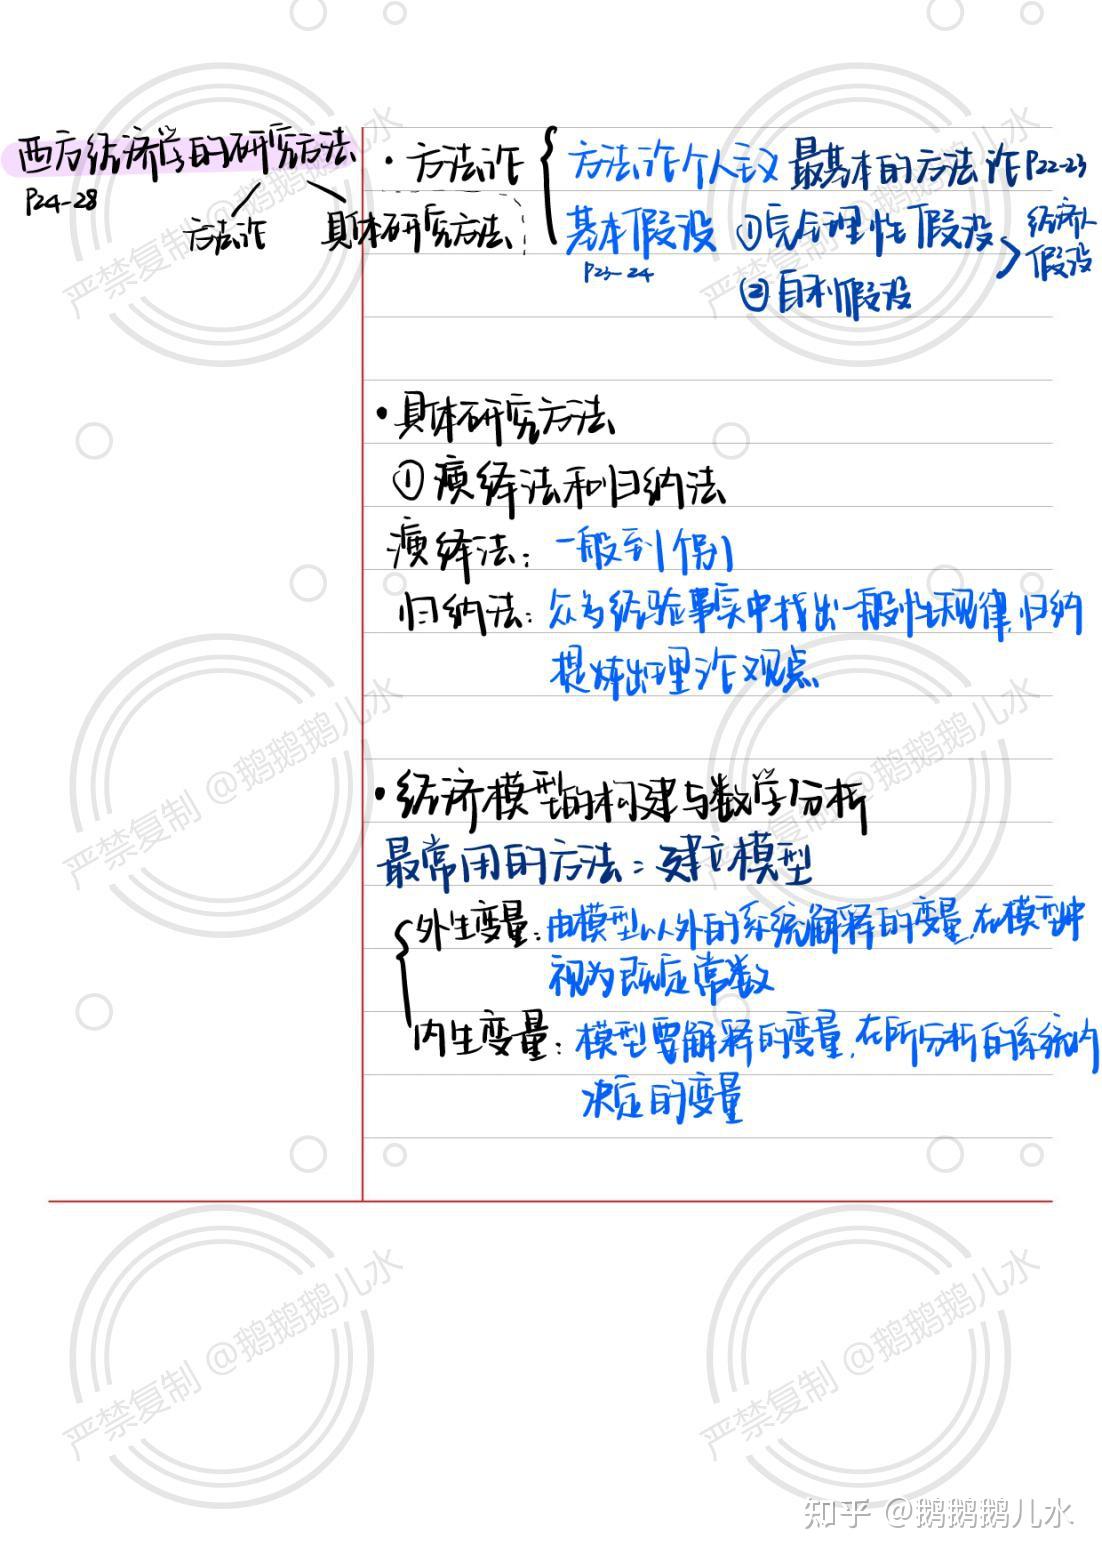 西方经济学的研究方法
P24-28
方法论 具体研究方法
·方法论 方法论个人主义 最基本的方法论P22-23
基本假设 ①完全理性假设 经济人假设
P23-24
②自利假设
·具体研究方法
①演绎法和归纳法
演绎法：一般到个别
归纳法：从经验事实中找出一般性规律,归纳
提炼出理论观点
·经济模型的构建与数学分析
最常用的方法：建立模型
外生变量：由模型以外的系统解释的变量,在模型中
视为既定常数
内生变量：模型要解释的变量,在所分析的系统内
决定的变量
严禁复制 @鹅鹅鹅儿水
严禁复制 @鹅鹅鹅儿水
严禁复制 @鹅鹅鹅儿水
严禁复制 @鹅鹅鹅儿水
严禁复制 @鹅鹅鹅儿水
严禁复制 @鹅鹅鹅儿水
知乎 @鹅鹅鹅儿水